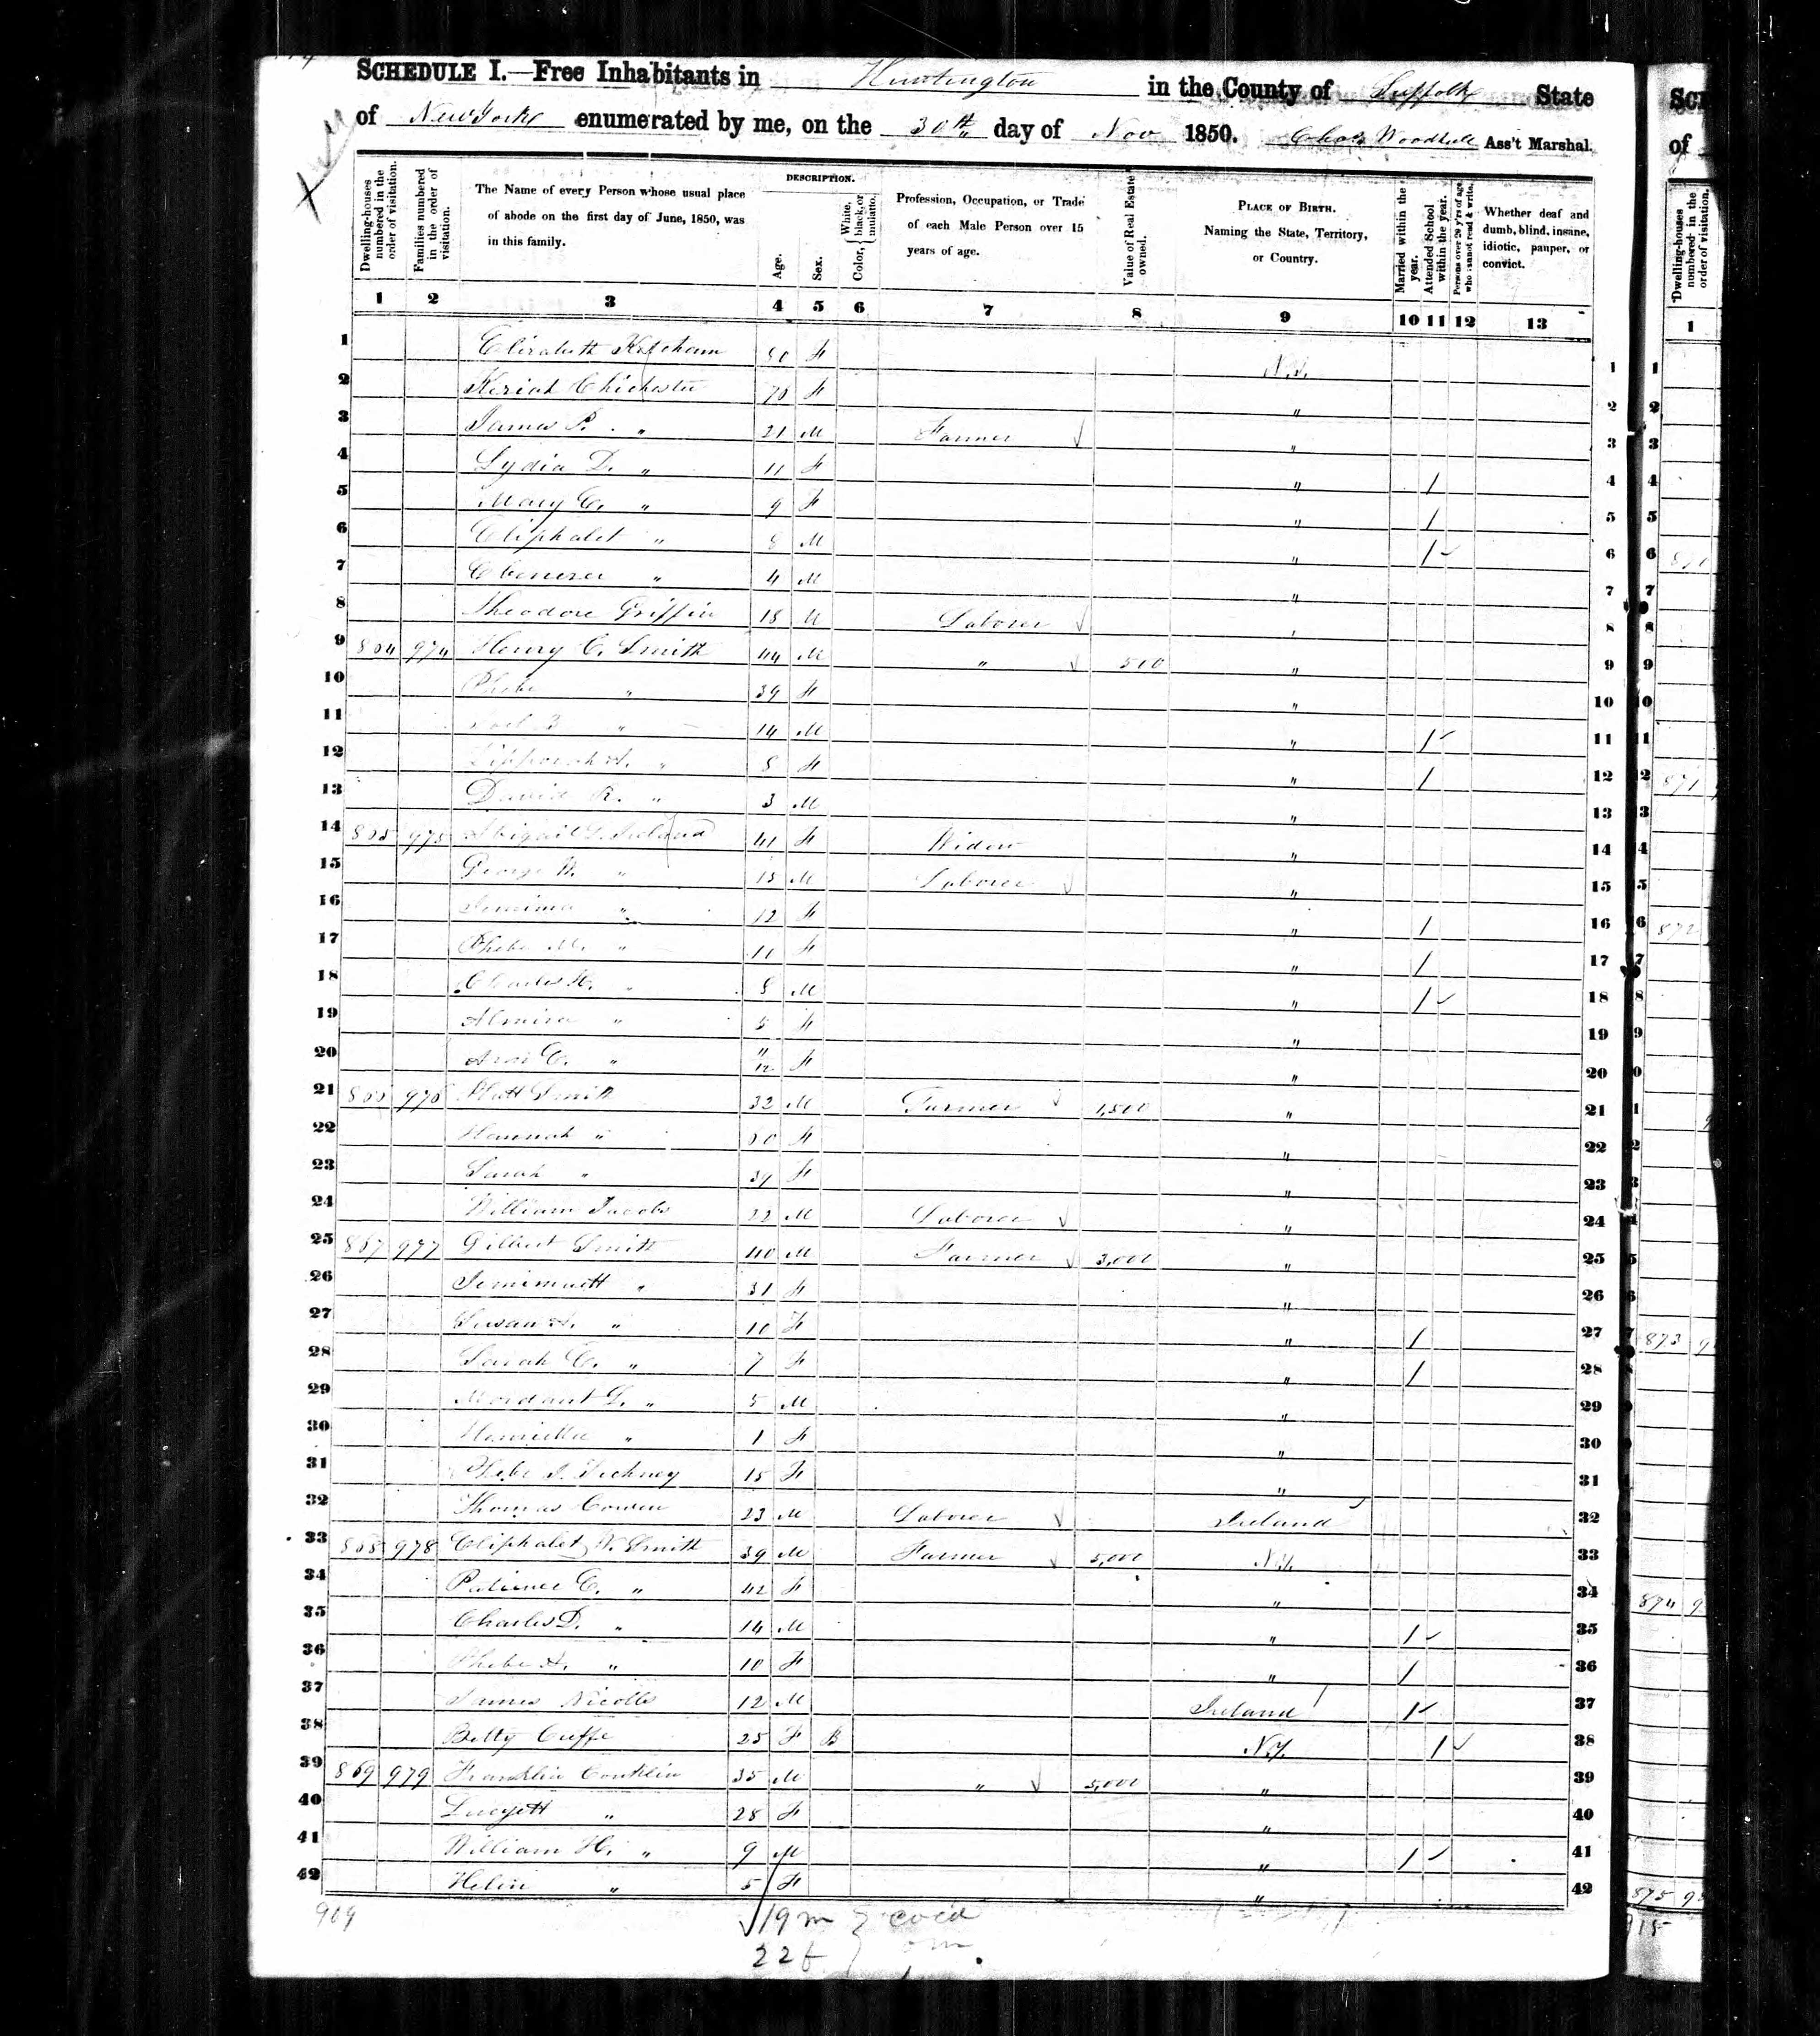 SCHEDULE I.—Free Inhabitants in Huntington in the County of Suffolk State
of New York enumerated by me, on the 30th day of Nov 1850. Chas Woodhull Ass't Marshal.
Dwelling-houses numbered in the order of visitation.
Families numbered in the order of visitation.
The Name of every Person whose usual place of abode on the first day of June, 1850, was in this family.
DESCRIPTION.
Age.
Sex.
Color, { White, black, or mulatto.
Profession, Occupation, or Trade of each Male Person over 15 years of age.
Value of Real Estate owned.
PLACE OF BIRTH. Naming the State, Territory, or Country.
Married within the year.
Attended School within the year.
Persons over 20 y'rs of age who cannot read & write.
Whether deaf and dumb, blind, insane, idiotic, pauper, or convict.
1 2 3 4 5 6 7 8 9 10 11 12 13
1 Elizabeth Ketcham F N.Y. 1
2 Keziah Chichester F " 2
3 James P. " 21 M Farmer " 3
4 Lydia D. " 11 F " / 4
5 Mary E. " 9 F " / 5
6 Eliphalet " 8 M " / 6
7 Ebenezer " 4 M " 7
8 Theodore Griffin 18 M Laborer " 8
9 864 974 Henry C. Smith 44 M " 500 " 9
10 Phebe " 39 F " 10
11 " 14 M " / 11
12 Zipporah A. " 8 F " / 12
13 David R. " 3 M " 13
14 865 975 Abigail Ireland 41 F Widow " 14
15 George W. " M Laborer " 15
16 Jemima " 12 F " / 16
17 Phebe M. " 11 F " / 17
18 Charles H. " 8 M " / 18
19 Almira " 5 F " 19
20 " 11/12 F " 20
21 866 976 Platt Smith 32 M Farmer 1,500 " 21
22 Hannah " F " 22
23 Sarah " 39 F " 23
24 William Jacobs 22 M Laborer " 24
25 867 977 Gilbert Smith 40 M Farmer 3,000 " 25
26 Jemimuett " 31 F " 26
27 Susan A. " 10 F " / 27
28 Sarah E. " 7 F " / 28
29 Mordaunt L. " 5 M " 29
30 Henrietta " 1 F " 30
31 Phebe J. 15 F " 31
32 Thomas Cowen 23 M Laborer Ireland 32
33 868 978 Eliphalet W. Smith 39 M Farmer 5,000 N.Y. 33
34 Patience E. " 42 F " 34
35 Charles D. " 14 M " / 35
36 Phebe A. " 10 F " / 36
37 James Nicolls 12 M Ireland / 37
38 Betty Cuffe 25 F B N.Y. / 38
39 869 979 Franklin Conklin 35 M " 5,000 " 39
40 Lucyett " 28 F " 40
41 William H. " 9 M " / 41
42 Helen " 5 F " 42
909
19 m
22 f
SCH
of
Dwelling-houses numbered in the order of visitation.
1
871
872
873
874
875